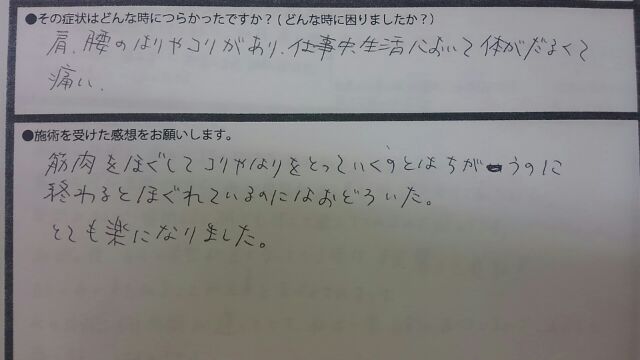 ●その症状はどんな時につらかったですか？(どんな時に困りましたか？)
肩、腰のはりやコリがあり、仕事や生活において体がだるくて
痛い、
●施術を受けた感想をお願いします。
筋肉をほぐしてコリやはりをとっていくのとはちがうのに
終わるとほぐれているのにはおどろいた。
とても楽になりました。